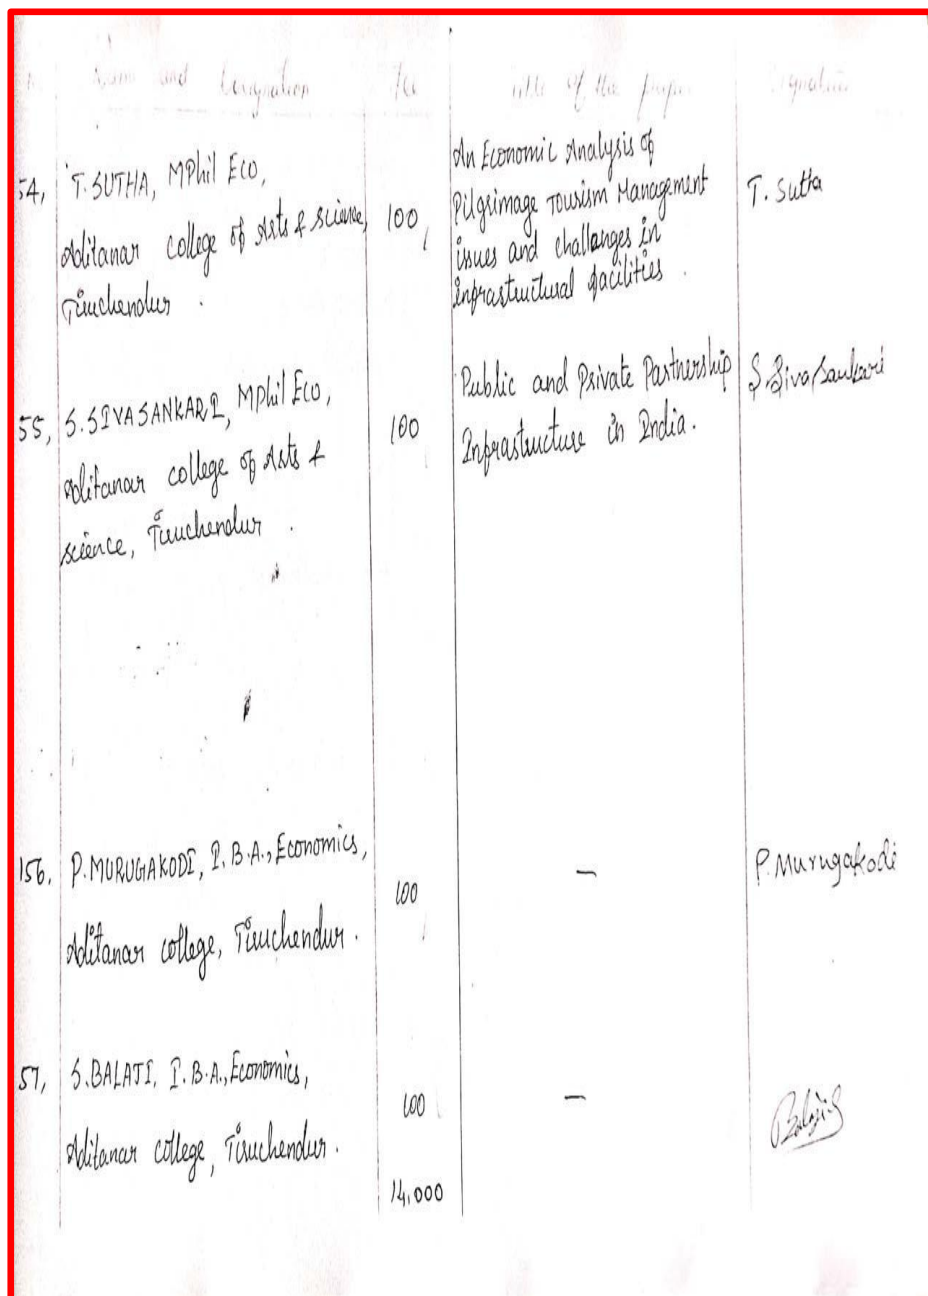 Name and Designation Fee Title of the paper Signature
54, T. SUTHA, MPhil Eco,
Aditanar college of Arts & science,
Tiruchendur .
100,
An Economic Analysis of
Pilgrimage Tourism Management
issues and challanges in
infrastuctural facilities .
T. Sutha
55, S.SIVASANKARI, MPhil Eco,
Aditanar college of Arts &
science, Tiruchendur .
100
Public and Private Partnership
Infrastucture in India.
S. Sivasankari
156, P.MURUGAKODI, I. B.A., Economics,
Aditanar college, Tiruchendur .
100
—
P. Murugakodi
57, S.BALAJI, I. B.A., Economics,
Aditanar college, Tiruchendur .
100
—
Balaji S
14,000